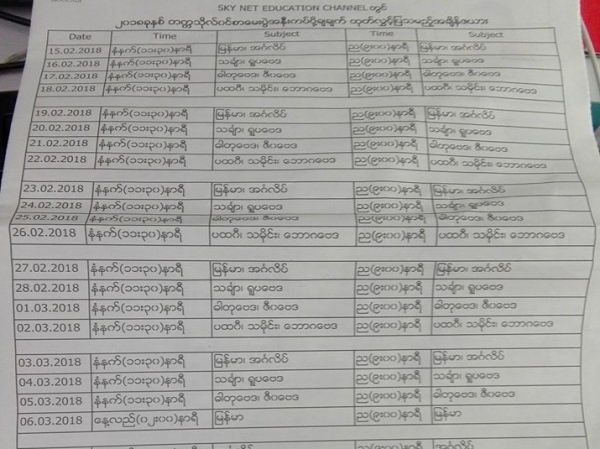 SKY NET EDUCATION CHANNEL တွင်
၂၀၁၈ခုနှစ် တက္ကသိုလ်ဝင်စာမေးပွဲအနီးကပ်ပို့ချချက် ထုတ်လွှင့်ပြသမည့်အချိန်ဇယား
Date Time Subject Time Subject
15.02.2018 နံနက်(၁၁း၃၀)နာရီ မြန်မာ၊ အင်္ဂလိပ် ည(၉း၀၀)နာရီ မြန်မာ၊ အင်္ဂလိပ်
16.02.2018 နံနက်(၁၁း၃၀)နာရီ သင်္ချာ၊ ရူပဗေဒ ည(၉း၀၀)နာရီ သင်္ချာ၊ ရူပဗေဒ
17.02.2018 နံနက်(၁၁း၃၀)နာရီ ဓါတုဗေဒ၊ ဇီဝဗေဒ ည(၉း၀၀)နာရီ ဓါတုဗေဒ၊ ဇီဝဗေဒ
18.02.2018 နံနက်(၁၁း၃၀)နာရီ ပထဝီ၊ သမိုင်း၊ ဘောဂဗေဒ ည(၉း၀၀)နာရီ ပထဝီ၊ သမိုင်း၊ ဘောဂဗေဒ
19.02.2018 နံနက်(၁၁း၃၀)နာရီ မြန်မာ၊ အင်္ဂလိပ် ည(၉း၀၀)နာရီ မြန်မာ၊ အင်္ဂလိပ်
20.02.2018 နံနက်(၁၁း၃၀)နာရီ သင်္ချာ၊ ရူပဗေဒ ည(၉း၀၀)နာရီ သင်္ချာ၊ ရူပဗေဒ
21.02.2018 နံနက်(၁၁း၃၀)နာရီ ဓါတုဗေဒ၊ ဇီဝဗေဒ ည(၉း၀၀)နာရီ ဓါတုဗေဒ၊ ဇီဝဗေဒ
22.02.2018 နံနက်(၁၁း၃၀)နာရီ ပထဝီ၊ သမိုင်း၊ ဘောဂဗေဒ ည(၉း၀၀)နာရီ ပထဝီ၊ သမိုင်း၊ ဘောဂဗေဒ
23.02.2018 နံနက်(၁၁း၃၀)နာရီ မြန်မာ၊ အင်္ဂလိပ် ည(၉း၀၀)နာရီ မြန်မာ၊ အင်္ဂလိပ်
24.02.2018 နံနက်(၁၁း၃၀)နာရီ သင်္ချာ၊ ရူပဗေဒ ည(၉း၀၀)နာရီ သင်္ချာ၊ ရူပဗေဒ
25.02.2018 နံနက်(၁၁း၃၀)နာရီ ဓါတုဗေဒ၊ ဇီဝဗေဒ ည(၉း၀၀)နာရီ ဓါတုဗေဒ၊ ဇီဝဗေဒ
26.02.2018 နံနက်(၁၁း၃၀)နာရီ ပထဝီ၊ သမိုင်း၊ ဘောဂဗေဒ ည(၉း၀၀)နာရီ ပထဝီ၊ သမိုင်း၊ ဘောဂဗေဒ
27.02.2018 နံနက်(၁၁း၃၀)နာရီ မြန်မာ၊ အင်္ဂလိပ် ည(၉း၀၀)နာရီ မြန်မာ၊ အင်္ဂလိပ်
28.02.2018 နံနက်(၁၁း၃၀)နာရီ သင်္ချာ၊ ရူပဗေဒ ည(၉း၀၀)နာရီ သင်္ချာ၊ ရူပဗေဒ
01.03.2018 နံနက်(၁၁း၃၀)နာရီ ဓါတုဗေဒ၊ ဇီဝဗေဒ ည(၉း၀၀)နာရီ ဓါတုဗေဒ၊ ဇီဝဗေဒ
02.03.2018 နံနက်(၁၁း၃၀)နာရီ ပထဝီ၊ သမိုင်း၊ ဘောဂဗေဒ ည(၉း၀၀)နာရီ ပထဝီ၊ သမိုင်း၊ ဘောဂဗေဒ
03.03.2018 နံနက်(၁၁း၃၀)နာရီ မြန်မာ၊ အင်္ဂလိပ် ည(၉း၀၀)နာရီ မြန်မာ၊ အင်္ဂလိပ်
04.03.2018 နံနက်(၁၁း၃၀)နာရီ သင်္ချာ၊ ရူပဗေဒ ည(၉း၀၀)နာရီ သင်္ချာ၊ ရူပဗေဒ
05.03.2018 နံနက်(၁၁း၃၀)နာရီ ဓါတုဗေဒ၊ ဇီဝဗေဒ ည(၉း၀၀)နာရီ ဓါတုဗေဒ၊ ဇီဝဗေဒ
06.03.2018 နေ့လည်(၀၂း၀၀)နာရီ မြန်မာ ည(၉း၀၀)နာရီ မြန်မာ